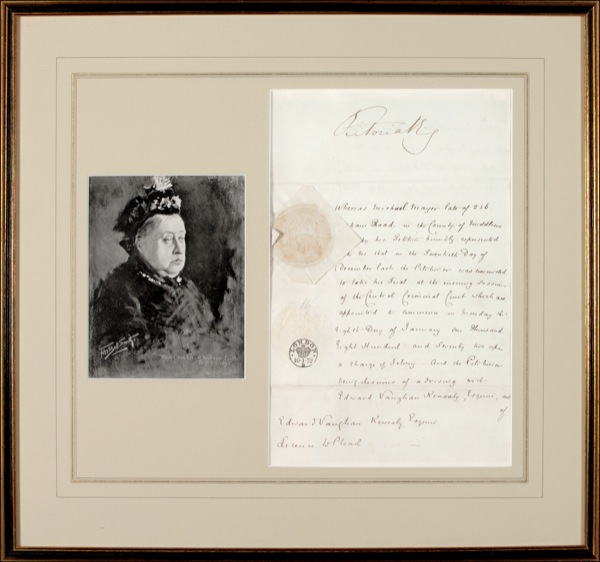 Victoria R
Whereas Michael Mayer late of 256
Road in the County of Middlesex
by his Petition humbly represented
to us that on the Twentieth Day of
December last the Petitioner was committed
to take his Trial at the ensuing Session
of the Central Criminal Court which are
appointed to commence on Monday the
Eighth Day of January One Thousand
Eight Hundred and Seventy two upon
a charge of Felony And the Petitioner
being desirous of advising with
Edward Vaughan Kenealy, Esquire, one
of
Edward Vaughan Kenealy Esquire
Licence to Plead
LONDON